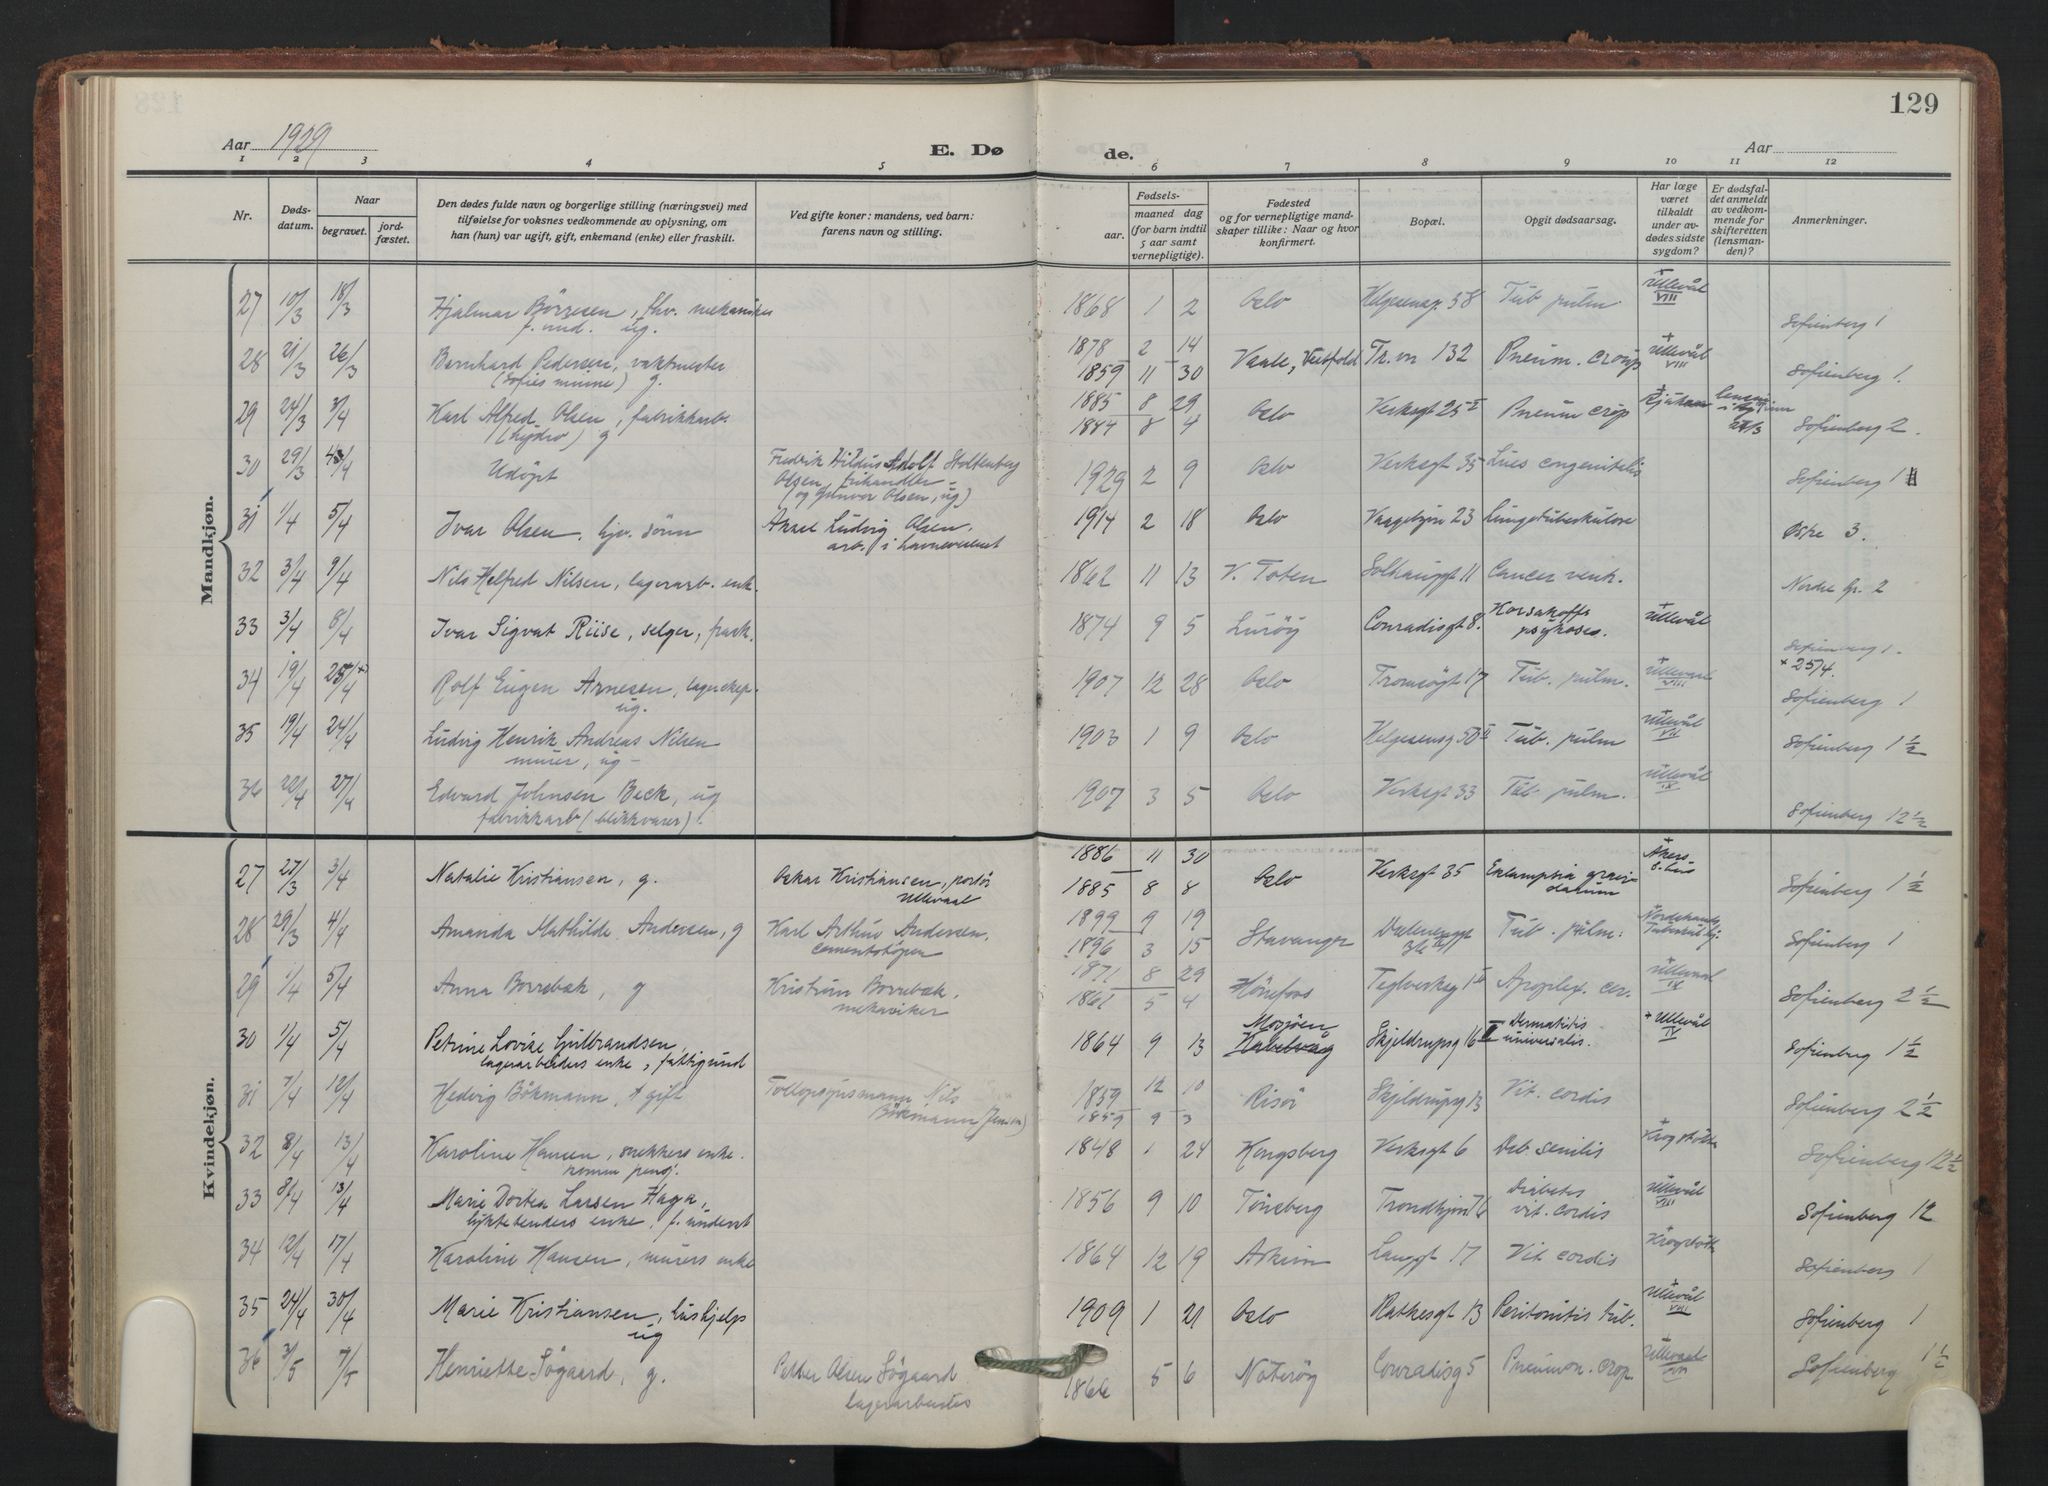 129
Aar 1929
E. Dø
de.
Aar
1 2 3 4 5 6 7 8 9 10 11 12
Nr.
Døds-
datum.
Naar
begravet.
jord-
fæstet.
Den dødes fulde navn og borgerlige stilling (næringsvei) med
tilføielse for voksnes vedkommende av oplysning, om
han (hun) var ugift, gift, enkemand (enke) eller fraskilt.
Ved gifte koner: mandens, ved barn:
farens navn og stilling.
Fødsels-
aar.
maaned dag
(for barn indtil
5 aar samt
vernepligtige).
Fødested
og for vernepligtige mand-
skaper tillike: Naar og hvor
konfirmert.
Bopæl.
Opgit dødsaarsag.
Har læge
været
tilkaldt
under av-
dødes sidste
sygdom?
Er dødsfal-
det anmeldt
av vedkom-
mende for
skifteretten
(lensman-
den)?
Anmerkninger.
Mandkjøn.
27 10/3 18/3 Hjalmar Börresen, fhv. mekaniker
f. und. ug. 1868 1 2 Oslo Helgesensg. 58 Tub. pulm. + Ullevål VIII Sofienberg 1
28 21/3 26/3 Bernhard Pedersen, vaktmester
(Sofies minne) g. 1878 2 14
1859 11 30 Vaale, Vestfold Tr.vn 132 Pneum. croup + Ullevål VIII Sofienberg 1.
29 24/3 3/4 Karl Alfred Olsen, fabrikkarb.
(hydro) g 1885 8 29
1884 8 4 Oslo Verksgt 25 II Pneum crop + Rjukan Sofienberg 2.
30 29/3 /4 Udöpt Fredrik Hildus Adolf Stoltenberg
Olsen, frihandler
(og Gunvor Olsen, ug) 1929 2 9 Oslo Verksgt 35 Lues congenitalis Sofienberg 1
31 1/4 5/4 Ivar Olsen, hjv. sönn Aksel Ludvig Olsen,
arb. i havnevesenet 1914 2 18 Oslo Vaagebyn 23 Lungetuberkulose Østre 3.
32 3/4 9/4 Nils Helfred Nilsen, lagerarb. enk. 1862 11 13 V. Toten Solhauggt 11 Cancer ventr. Nordre Gr. 2
33 3/4 8/4 Ivar Sigvat Riise, selger, frask. 1874 9 5 Luröy Conradisgt 8. Korsakoffs
psykoses. + Ullevål Sofienberg 1.
34 19/4 25/4 +) Rolf Eugen Arnesen, lagereksp.
ug. 1907 12 28 Oslo Tromsögt 17 Tub. pulm. + Ullevaal VIII + 25/4.
Sofienberg 1
35 19/4 24/4 Ludvig Henrik Andreas Nilsen
murer, ug - 1903 1 9 Oslo Helgesensg 50 II Tub. pulm + Ullevål VII Sofienberg 1 1/2
36 20/4 27/4 Edvard Johnsen Beck, ug
fabrikkarb (blikkvarer). 1907 3 5 Oslo Verksgt 33 Tub. pulm. + Ullevål IX Sofienberg 12 1/2
Kvindekjøn.
27 27/3 3/4 Natalie Kristiansen, g. Oskar Kristiansen, portör
Ullevaal 1886 11 30
1885 8 8 Oslo Verksgt 35 Eclampsia gravi-
darum + Akers-
hus Sofienberg 1 1/2
28 29/3 4/4 Amanda Mathilde Andersen, g Karl Arthur Andersen,
cementstöper 1899 9 19
1896 3 15 Stavanger Dælenenggt
36 Tub. pulm. Sofienberg 1
29 1/4 5/4 Anna Borrebæk, g Kristian Borrebæk,
mekaniker 1871 8 29
1861 5 4 Hönefoss Teglverksg 1 Apoplex. cer. + Ullevaal IX Sofienberg 2 1/2
30 1/4 5/4 Petrine Lovise Gulbrandsen,
lagerarbeiders enke, fattigund 1864 9 13 Mosjöen Skjeldrupsg 16 II Dermatitis
universalis. + Ullevål IV Sofienberg 1 1/2
31 7/4 12/4 Hedvig Bökmann, gift Tollopsynsmann Nils
Bökmann (Jensen) 1859 12 10
1859 9 3 Risör Skjeldrupsg 13 Vit. cordis Sofienberg 2 1/2
32 8/4 13/4 Karoline Hansen, snekkers enke.
komm pensj. 1848 1 24 Kongsberg Verksgt 6 Deb. senilis + Krogstötten Sofienberg 12 1/2
33 8/4 13/4 Marie Dortea Larsen Haga,
lyktetenders enke, f. underst 1856 9 10 Tönsberg Trondhjem 76 Diabetes
vit. cordis + Ullevål VIII Sofienberg 12
34 12/4 17/4 Karoline Hansen, murers enke 1864 12 19 Askim Langgt 17 Vit. cordis Krogstött Sofienberg 1
35 24/4 30/4 Marie Kristiansen, hushjelp
ug 1909 1 21 Oslo Rathkesgt 13 Peritonitis tub. + Ullevål VIII Sofienberg 1
36 3/5 7/5 Henriette Sögaard, g. Petter Olsen Sögaard
lagerarbeider 1866 5 6 Nöteröy Conradisg 5 Pneumon. crop. + Ullevaal Sofienberg 1 1/2